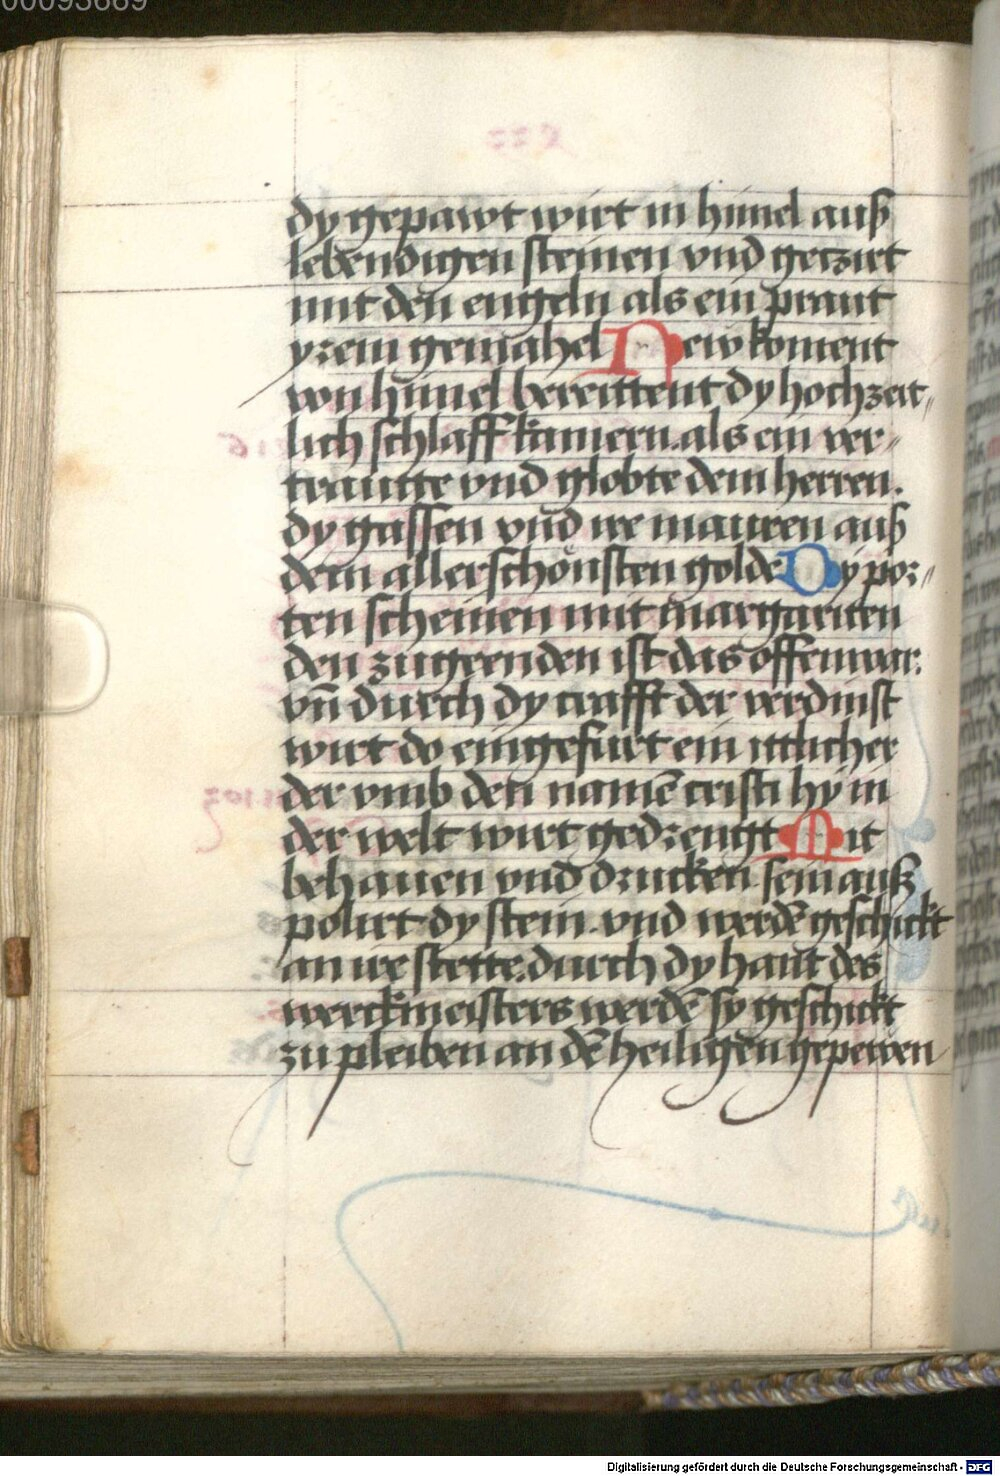 dy gepawt wirt in himel auß
lebendigen steinen vnd geczirt
mit den engeln als ein praut
yrem gemahel New koment
von himel bereittent dy hochzeit„
lich schlaff kamern. als ein ver„
trautte vnd globte dem herren.
dy gassen vnd ire mauren auß
dem aller schonsten golde Dy por„
ten scheinen mit margariten
den zugeenden ist das offenwar.
vn̄ durch dy crafft der verdinst
wirt do eingefurt ein ittlicher
der vmb den namē cristi hy in
der welt wirt gedrengt Mit
behauen vnd drucken sein auß
polirt dy stein. vnd werdē geschickt
an ire stette. durch dy hant des
werckmeisters werdē sy geschickt
zu pleiben an dē heiligen gepewen
Digitalisierung gefördert durch die Deutsche Forschungsgemeinschaft - DFG